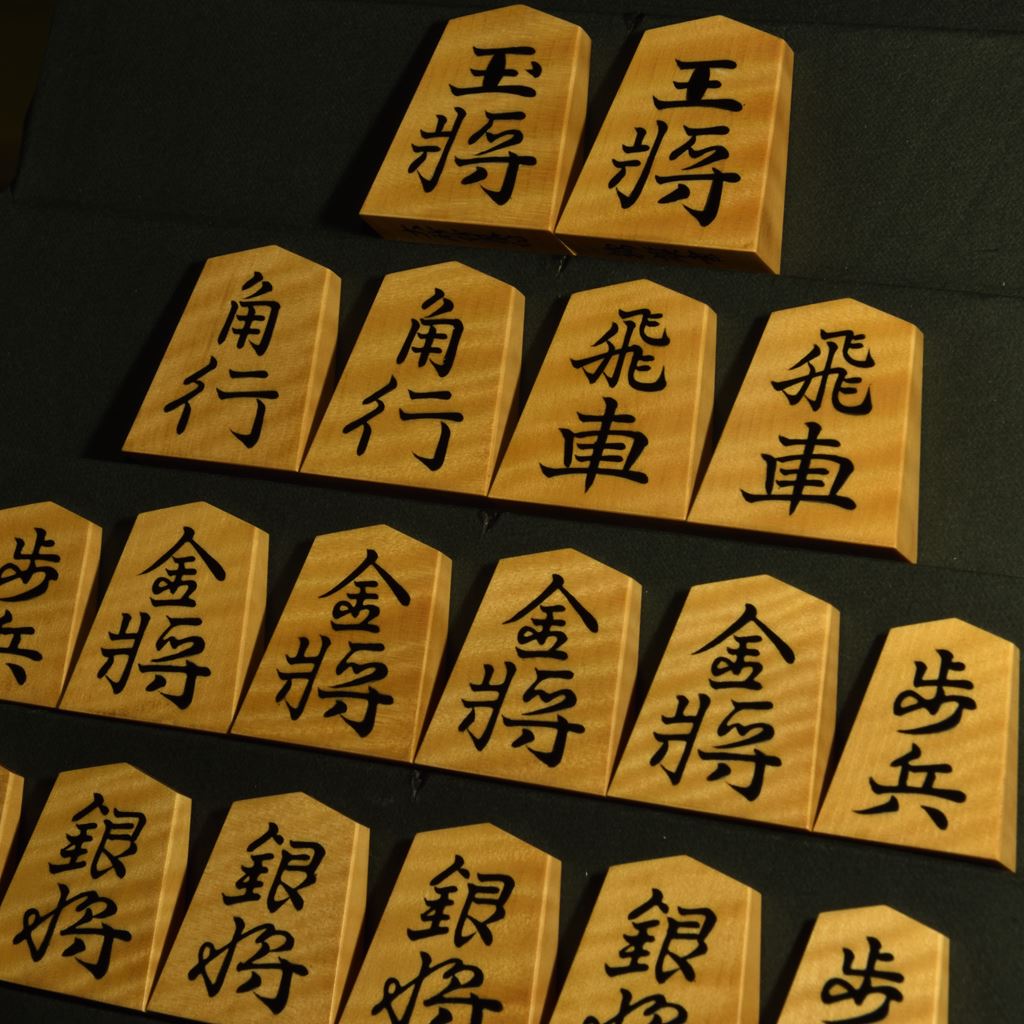 玉將
王將
角行
角行
飛車
飛車
歩兵
金將
金將
金將
金將
歩兵
銀将
銀将
銀将
銀将
歩